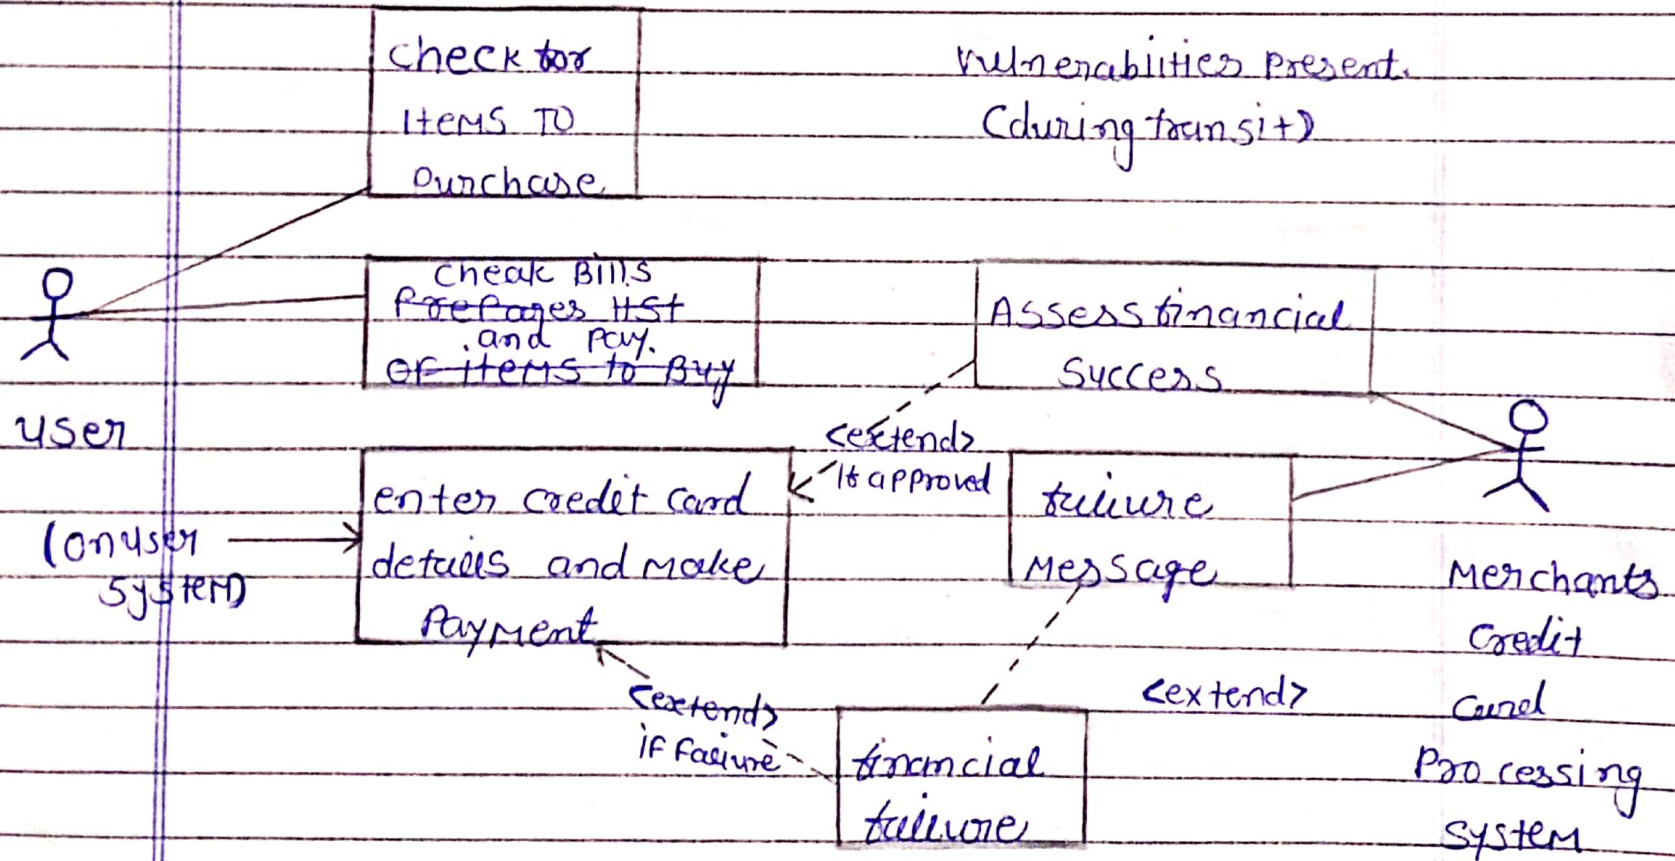 Check for
Items TO
Purchase
Vulnerabilities Present.
(during transit)
Cheak Bills
Prepares list
and Pay.
of items to Buy
Assess financial
Success
User
<extend>
If approved
enter credit card
details and make
Payment
(on user
system)
failure
Message
Merchants
Credit
Card
Processing
System
<extend>
if failure
<extend>
financial
failure